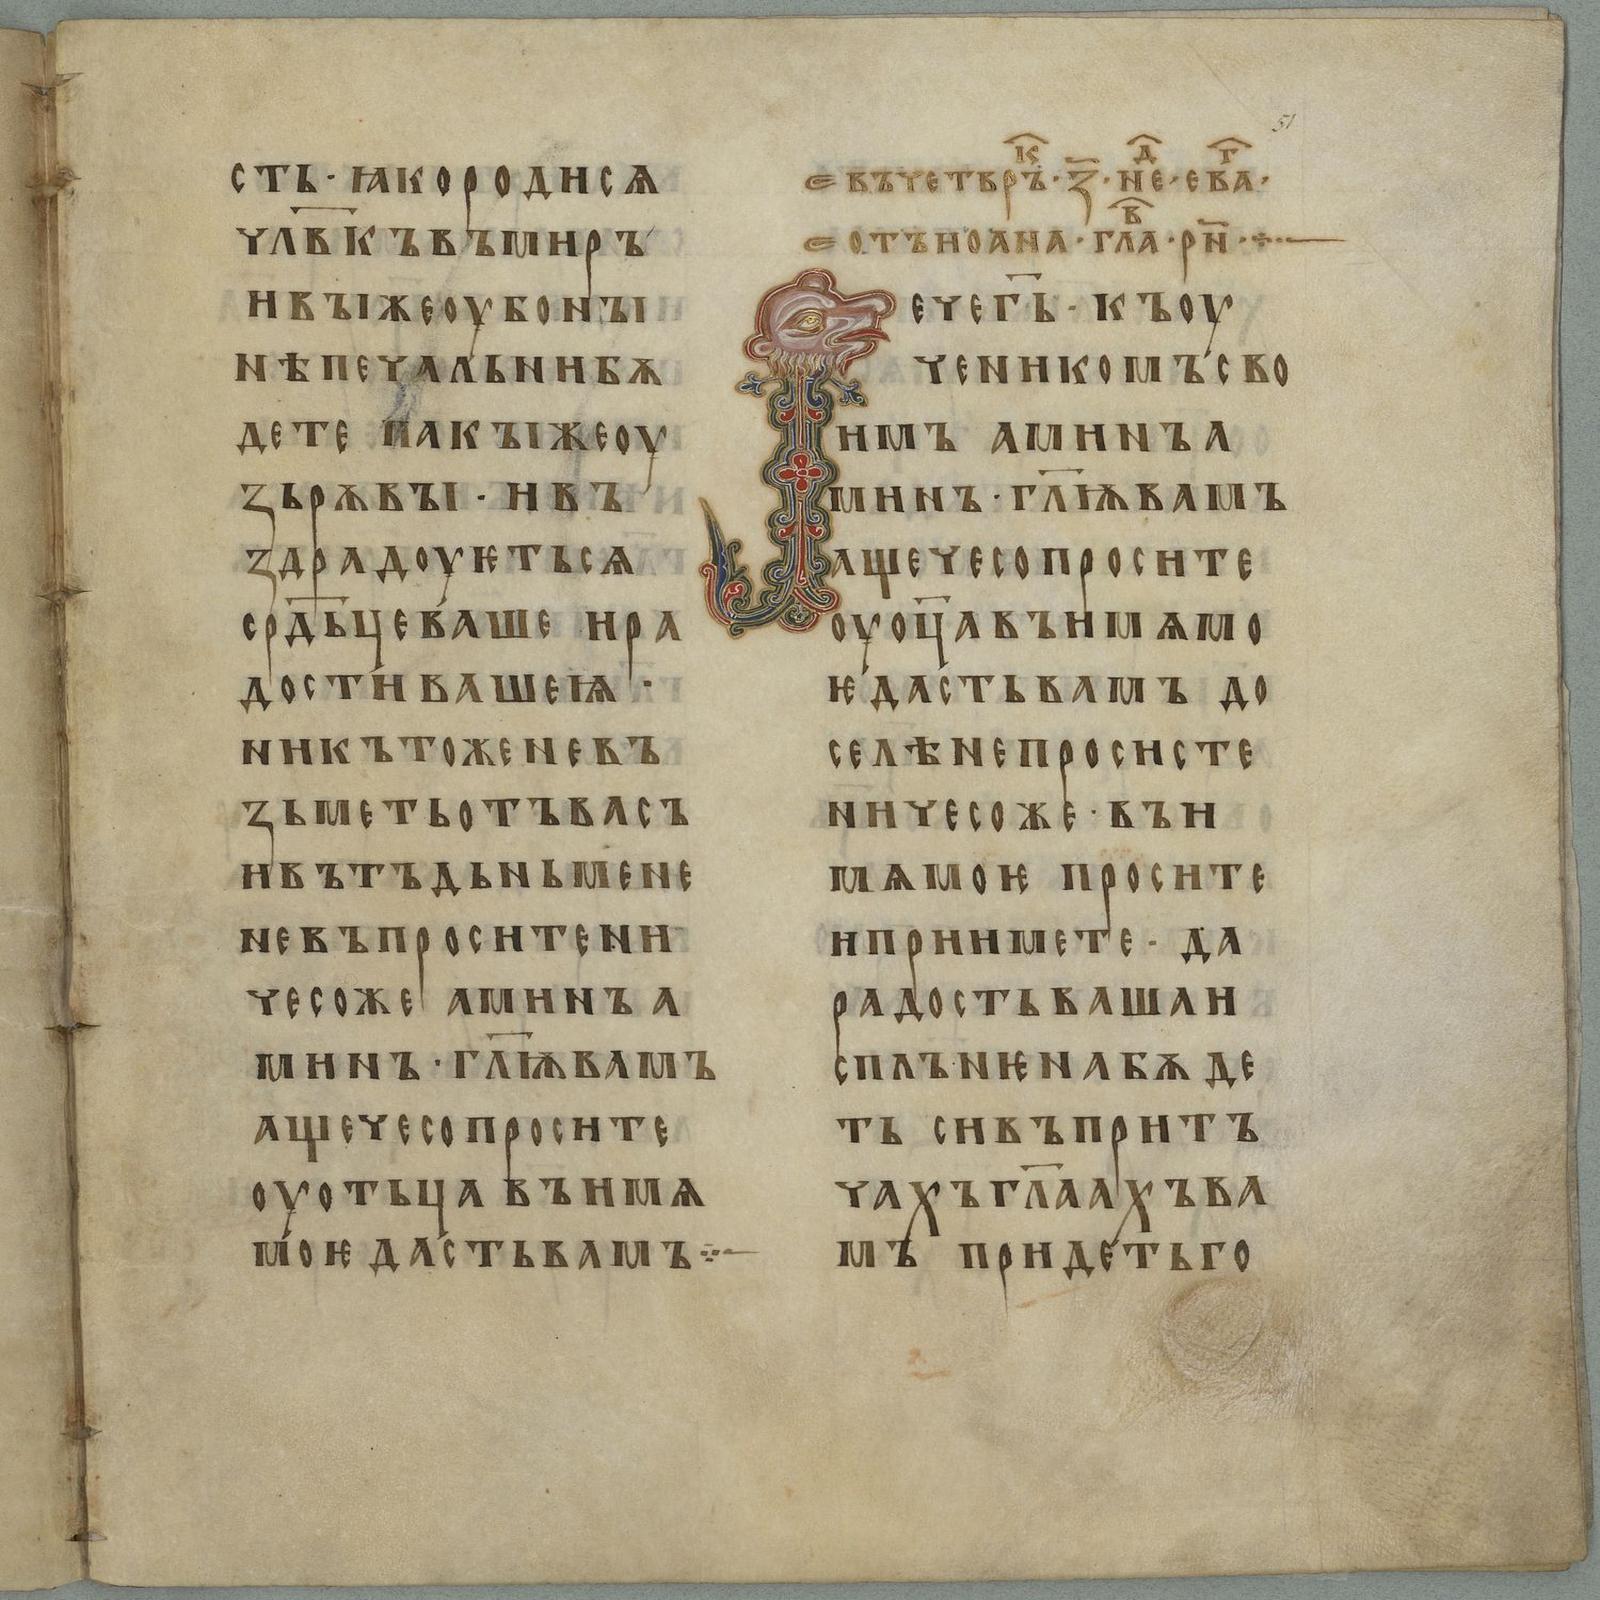 сть· ꙗкородисѧ
чл҃вкъвъмиръ
ивꙑжеоубонꙑ
нѣпечальнибѫ
дете пакꙑжеоу
зьрѫвꙑ· ивъ
здрадоуѥтьсѧ
ср҃дьцеваше ира
достивашеꙗ·
никътоженевъ
зьметьотъвасъ
ивътъдьньмене
невъпроситени
чесоже аминъа
минъ·гл҃ѭвамъ
ащечесопросите
оуотьцавъимѧ
моѥдастьвамъ
51
въчетврък·з҃·нед·ева҃г·
отъиоана·глав·рн҃·
ечегь҃·къоу
ченикомъсво
имъ аминъа
минъ·гл҃ѭвамъ
ащечесопросите
оуоц҃авъимѧмо
ѥдастьвамъ до
селѣнепросисте
ничесоже·въи
мѧмоѥ просите
ипримете· да
радостьвашаи
сплънѥнабѫде
ть сивъпритъ
чахъгл҃аахъва
мъ придетьго